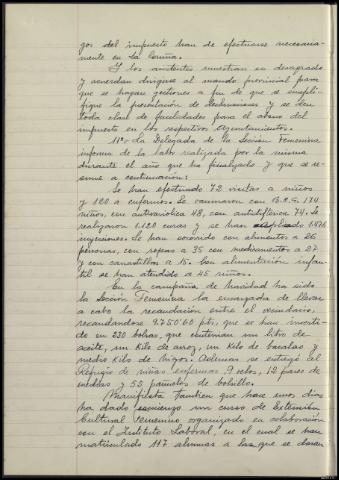 gos del impuesto han de efectuarse necesaria-
mente en La Coruña.
Y los asistentes muestran su desagrado
y acuerdan dirigirse al mando provincial para
que se hagan gestiones a fin de que se simpli-
fique la presentación de declaraciones y se den
toda clase de facilidades para el abono del
impuesto en los respectivos Ayuntamientos.
11º.- La Delegada de la Sección Femenina
informa de la labor realizada por la misma
durante el año que ha finalizado y que se re-
sume a continuación:
Se han efectuado 72 visitas a niños
y 120 a enfermos. Se vacunaron con B.C.G. 174
niños, con antivariólica 48, con antidiftérica 74. Se
realizaron 1.120 curas y se han aplicado 1.476
inyecciones. Se han socorrido con alimentos a 26
personas, con ropas a 35 con medicamentos a 27
y con canastillas a 15. Con alimentación infan-
til se han atendido a 45 niños.
En la campaña de Navidad ha sido
la Sección Femenina la encargada de llevar
a cabo la recaudación entre el vecindario,
recaudándose 9.750'60 pts, que se han inverti-
do en 230 bolsas, que contenían un litro de
aceite, un Kilo de arroz, un Kilo de bacalao y
medio Kilo de higos. Además se entregó al
Refugio de niñas enfermas 9 velos, 12 pares de
medias y 53 pañuelos de bolsillo.
Manifiesta también que hace unos días
ha dado comienzo un curso de Extensión
Cultural Femenino organizado en colaboración
con el Instituto Laboral, en el cual se han
matriculado 117 alumnas a las que se darán